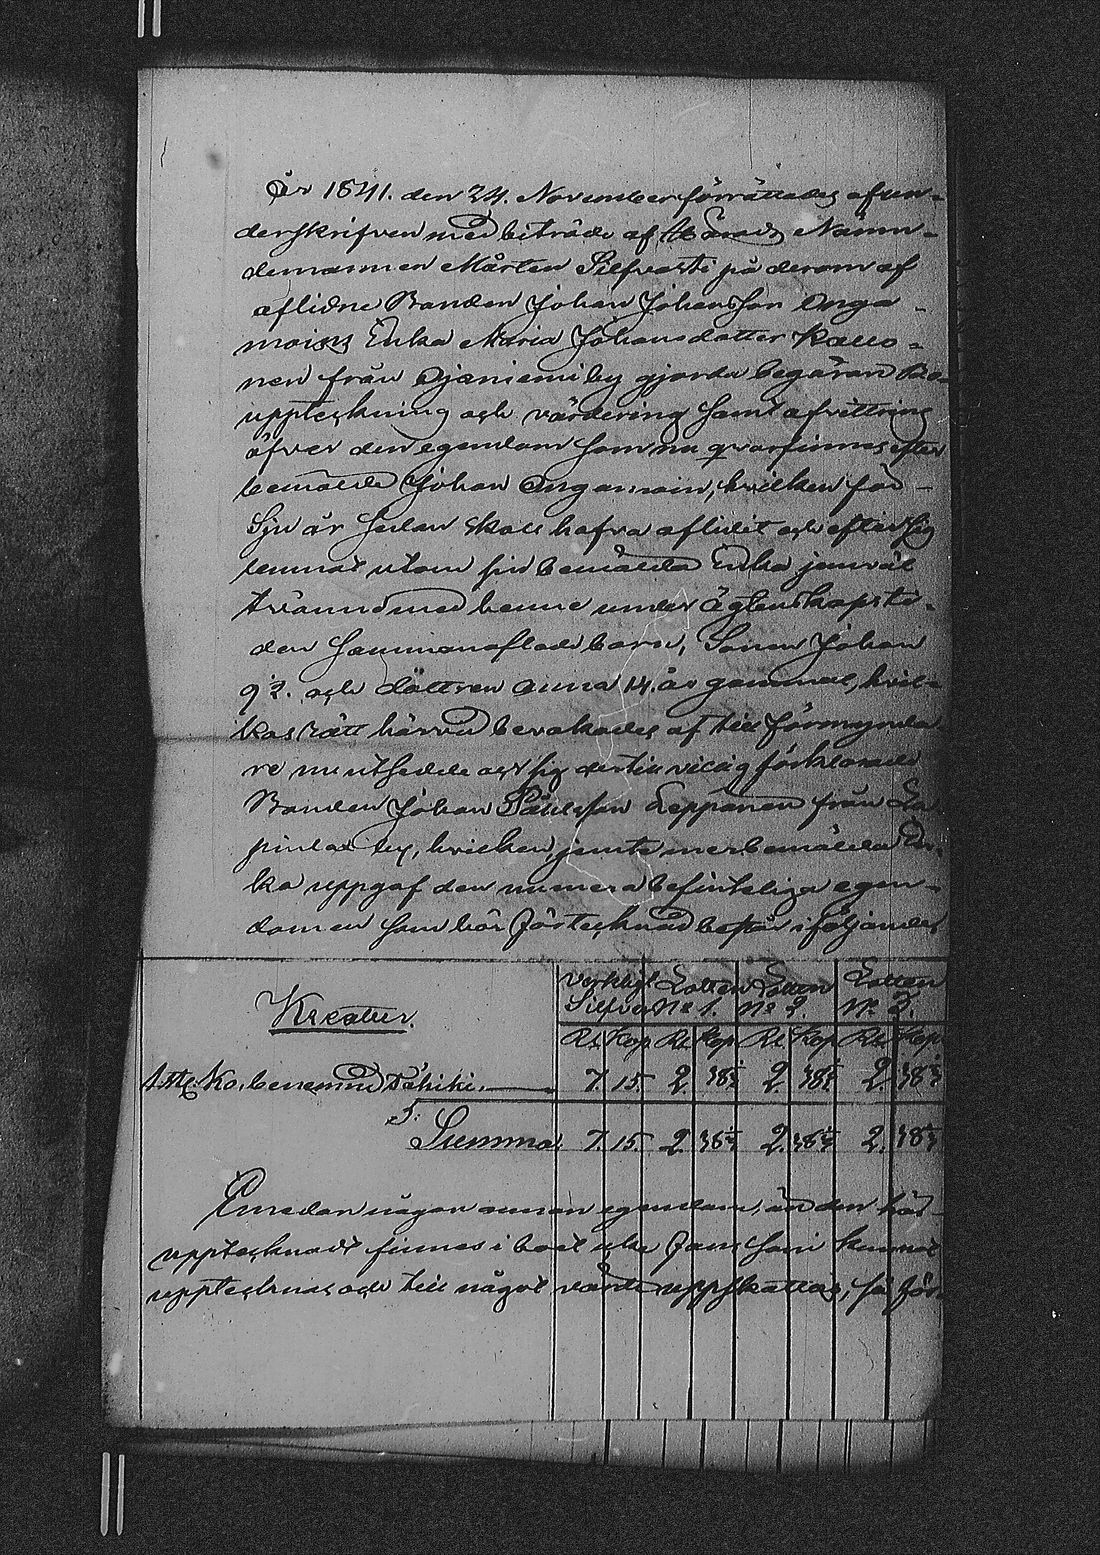 År 1841. den 24. November förrättades af un-
derskrifven med biträde af Härads Nämn-
demannen Mårten Silfvasti på derom af
aflidne Bonden Johan Johansson Anga-
moins Enka Maria Johansdotter Kallo-
nen från Ojaniemi by gjorda begäran Bo-
uppteckning och värdering samt afvittring
öfver den egendom som nu qvarfinnes efter
bemälde Johan Angamoin, hvilken för
Sju år sedan skall hafva aflidit och efter sig
lemnat utom sin bemälda Enka jemväl
tvänne med henne under Ägtenskapsti-
den sammanaflade barn, Sonen Johan
92. och dottren Anna 14. år gammal, hvil-
kas rätt härvid bevakades af till Förmynda
re nu utsedde och sig dertill villig förklarade
Bonden Johan Påhlsson Leppänen från La
pinlax by, hvilken, jemte merbemälda En-
ka uppgaf den numera befinteliga egen-
domen som här förtecknad består i följande,
Verkligt Lotten Lotten Lotten
Kreatur. Silfver No 1. No 2. No 3.
Rs Kop Rs Kop Rs Kop Rs Kop
1 st Ko, benemnd Tähiki. 7. 15. 2. 38⅓ 2. 38⅓ 2. 38⅓
S: Summa. 7. 15. 2. 38⅓ 2. 38⅓ 2. 38⅓
Emedan någon annan egendom, än den här
upptecknadt finnes i boet icke fans som kunnat
upptecknas och till något värde uppskattas, så för-